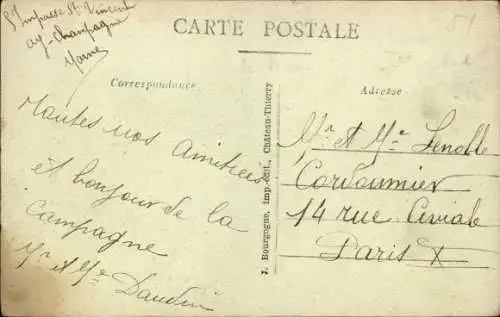 5 Impasse St Vincent
ay-champagne
Marne
CARTE POSTALE
Correspondance
Adresse
Toutes nos Amitiées
et bonjour de la
campagne
Mr et Me Daudin
J. Bourgogne, Imp.-édit., Château-Thierry
Mr et Me Lenoble
Cordonnier
14 rue Civiale
Paris X